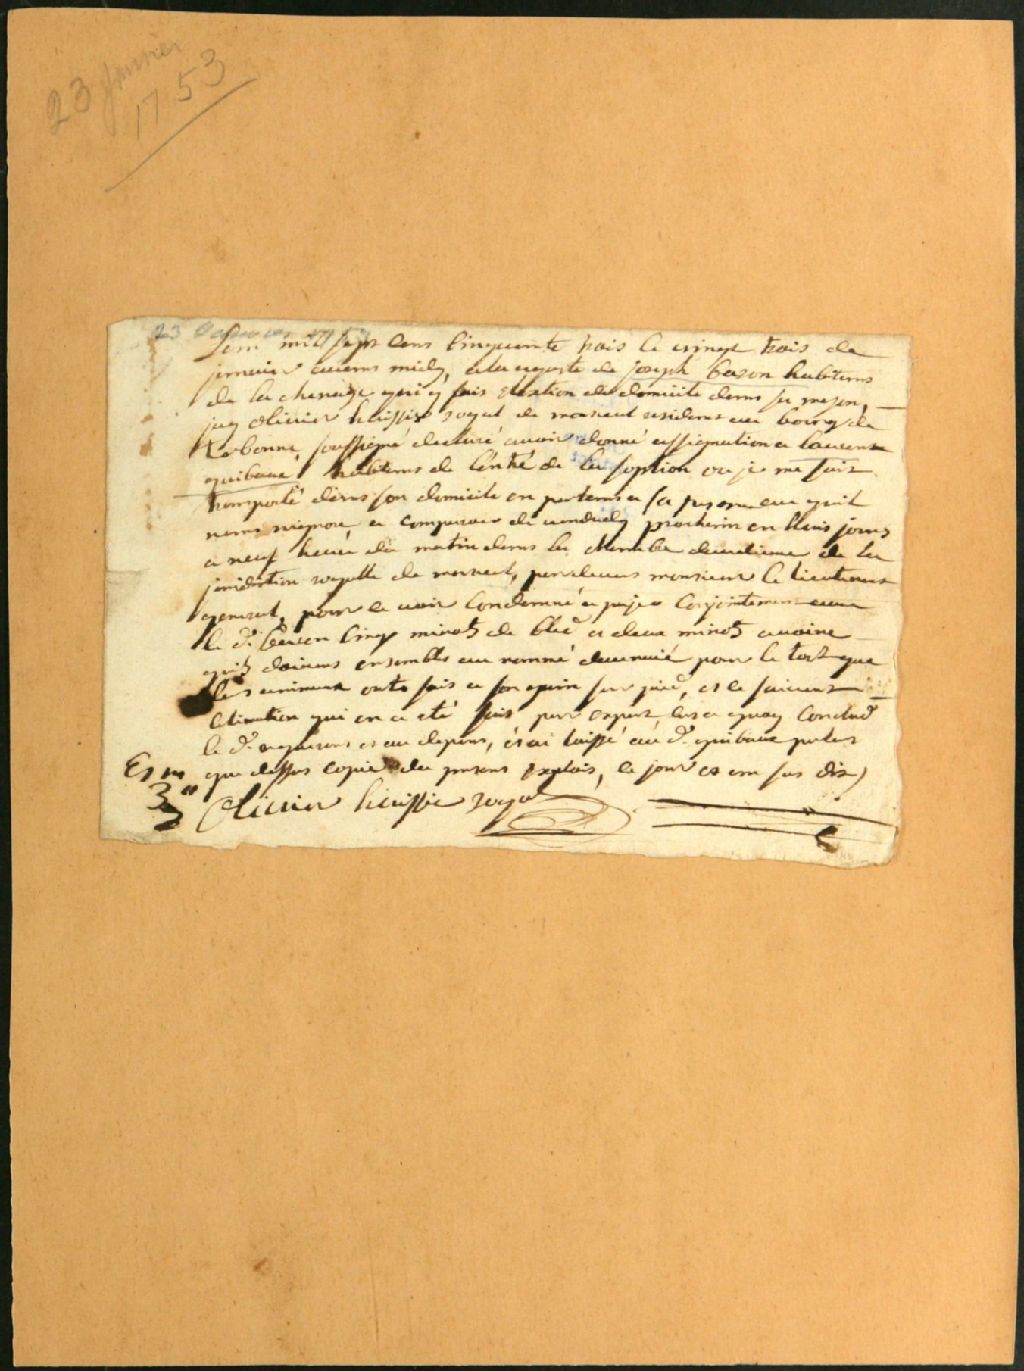 23 janvier
1753
23 Janvier 1753
Lan mil sept cens Cinquante trois le vingt trois de
janvier avant midy, a la reqeste de joseph bazon habitans
de la chenaige qui y fais Election de domicile dans sa meson,
jay Olivier huissie royal de monreal residans au bourg de
terbonne, soussigne declaré avoir donné assignation a laurans
guibaux habitans de lentré de la soption ou je me suis
transporté dans son domicile en parlans a sa persone au quil
nans nignore a comparoir de vandredy prochain en huis jours
a neuf heure du matin dans la chambre daudiance de la
juridiction royalle de monreal, pardevans monsieur le lieutenans
general, pour ce voir Condamné a pajer Conjointement avec
le dt. bazon Cinq minots de bled et deux minots avoine
quils doivens ensembles au nommé pour le tort que
les animaux onts fais a son grain sur pied, et le suivans
lestimation qui en a eté fais par expert, las a quoy Conclud
le dt. requerans et au depans, et ai laissé au dt. guibaux parlans
que dessus copie du presens Explois, le jour et an sus dis)
Olivier huissie royal
3"